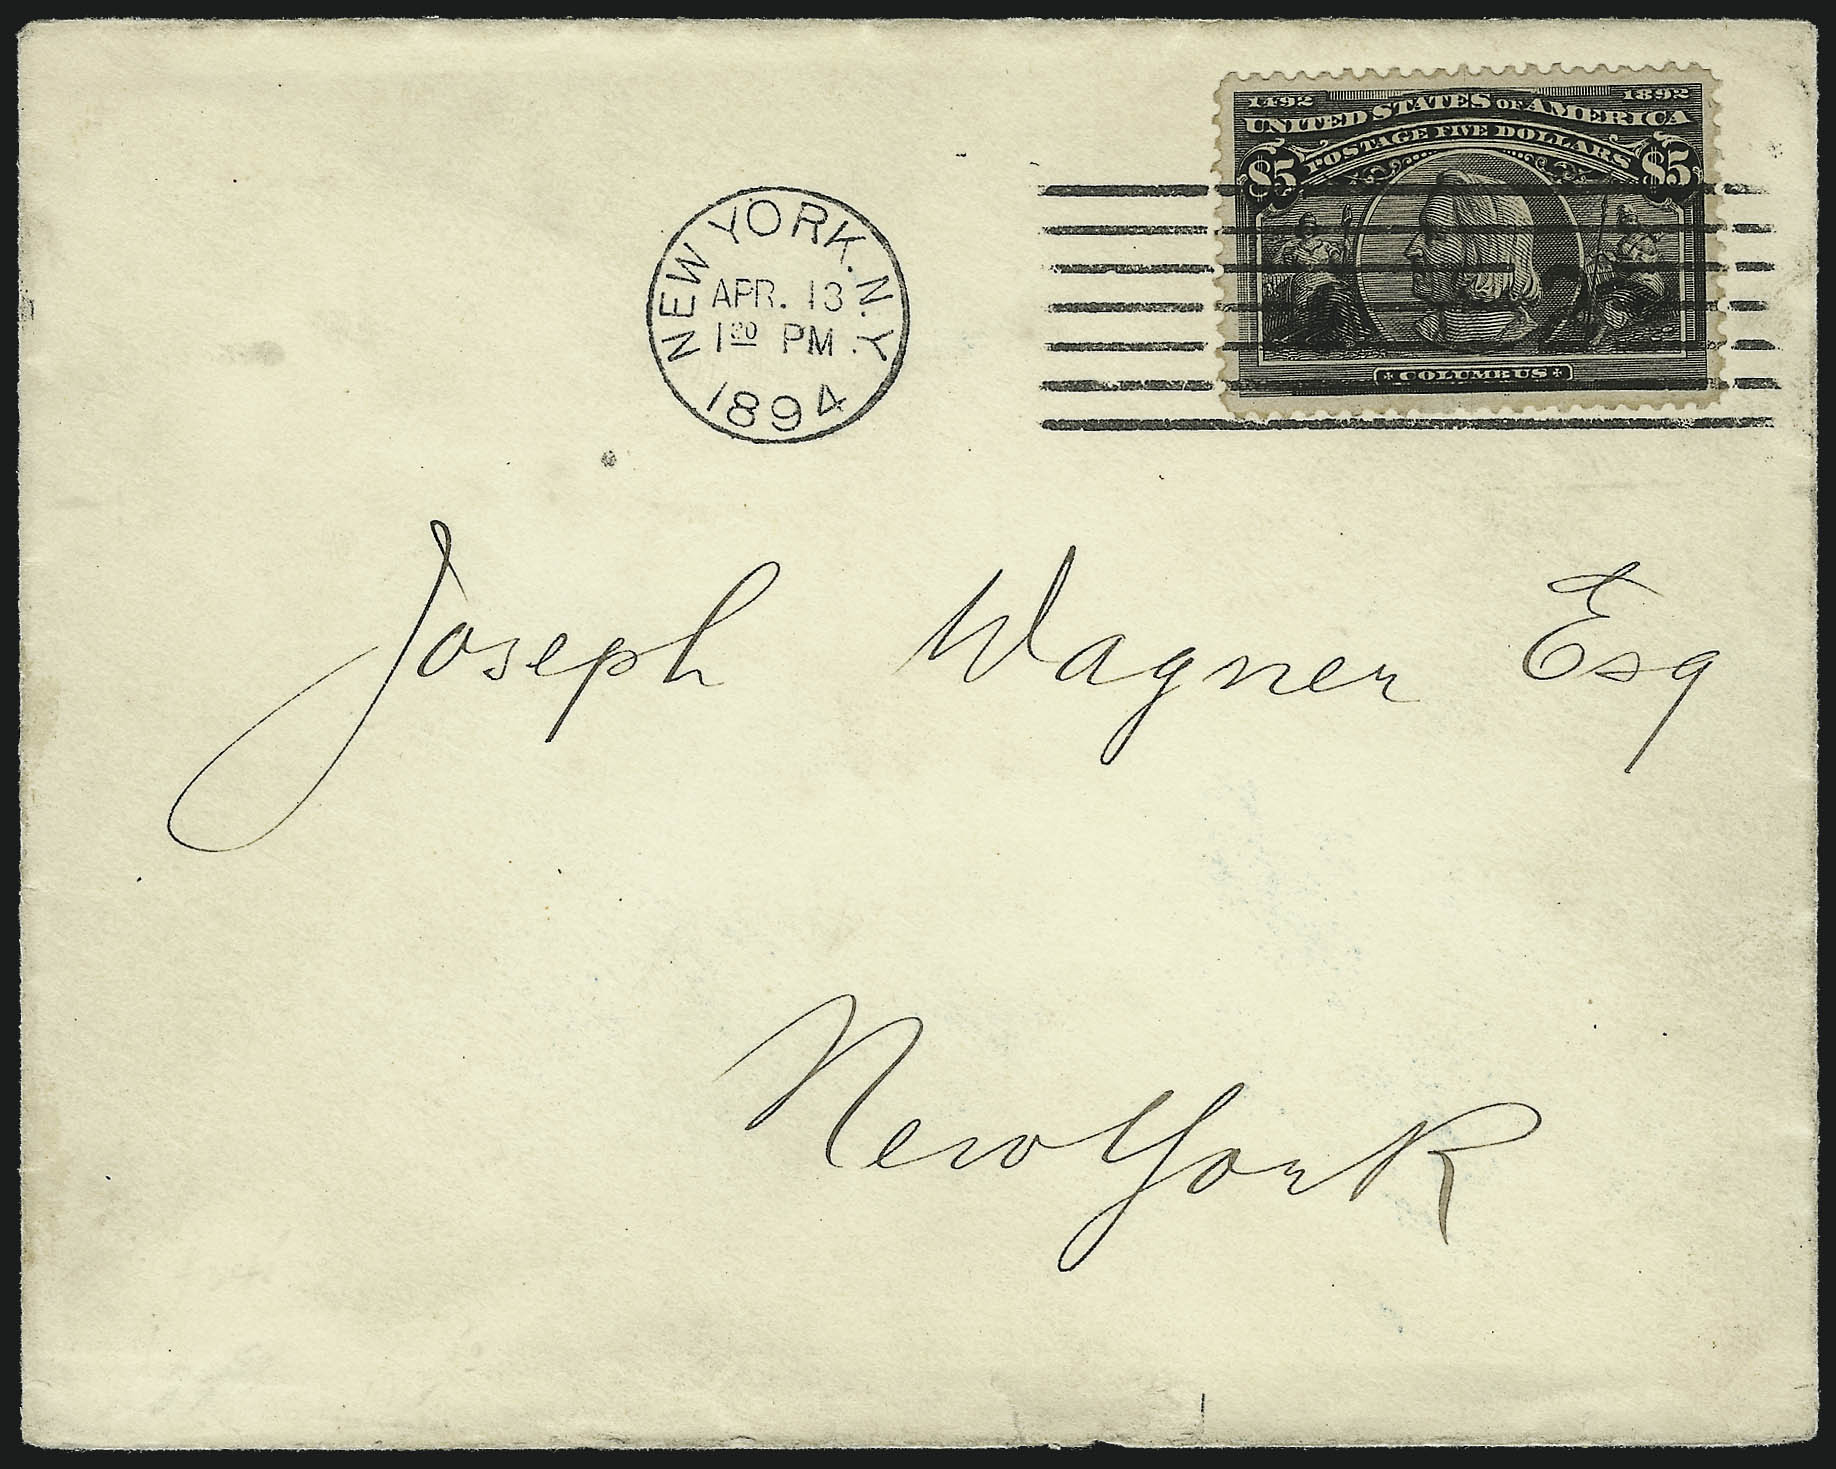 1492 1892
UNITED STATES OF AMERICA
POSTAGE FIVE DOLLARS
$5 $5
COLUMBUS
NEW YORK. N.Y.
APR. 13
1 30 PM
1894
Joseph Wagner Esq
New York